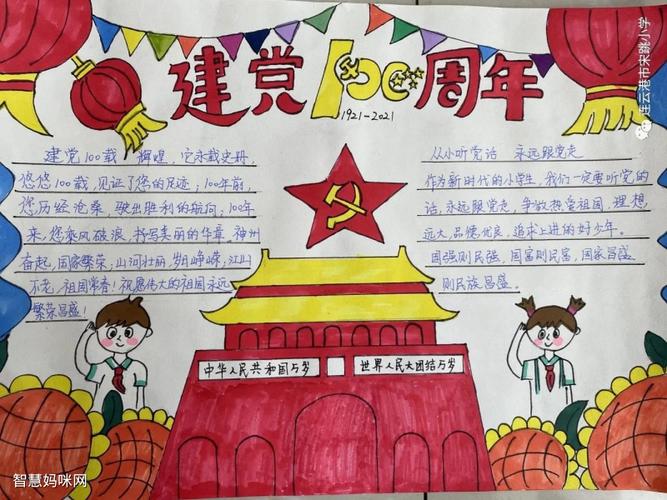 建党100周年
1921-2021
建党100载 辉煌，它永载史册，
悠悠100载，见证了您的足迹；100年前，
您历经沧桑，驶出胜利的航向；100年
来，您乘风破浪，书写美丽的华章。神州
奋起，国家繁荣，山河壮丽，岁月峥嵘，江山
不老，祖国常春！祝愿伟大的祖国永远
繁荣昌盛！
从小听党话 永远跟党走
作为新时代的小学生，我们一定要听党的
话，永远跟党走，争做热爱祖国，理想
远大，品德优良，追求上进的好少年。
国强则民强，国富则民富，国家昌盛
则民族昌盛。
中华人民共和国万岁
世界人民大团结万岁
连云港市宋跳小学
智慧妈咪网